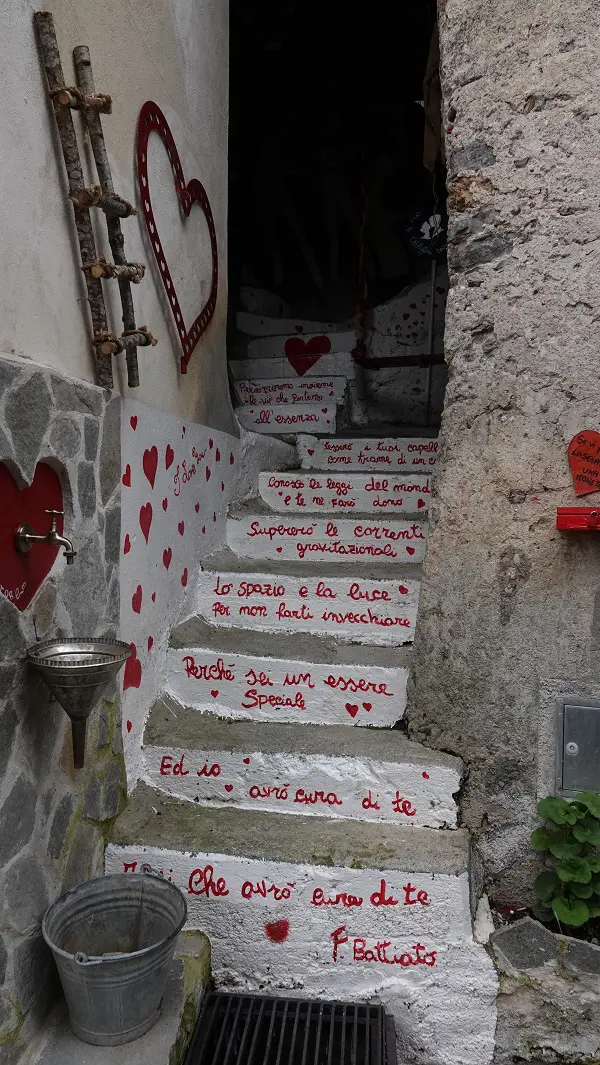 Percorreremo insieme
le vie che portano
all'essenza
Tesserò i tuoi capelli
come trame di un c
Conosco le leggi del mond
e te ne farò dono
Supererò le correnti
gravitazionali
Lo spazio e la luce
Per non farti invecchiare
Perché sei un essere
Speciale
Ed io avrò cura di te
Che avrò cura di te
F. Battiato
I Love
UNA